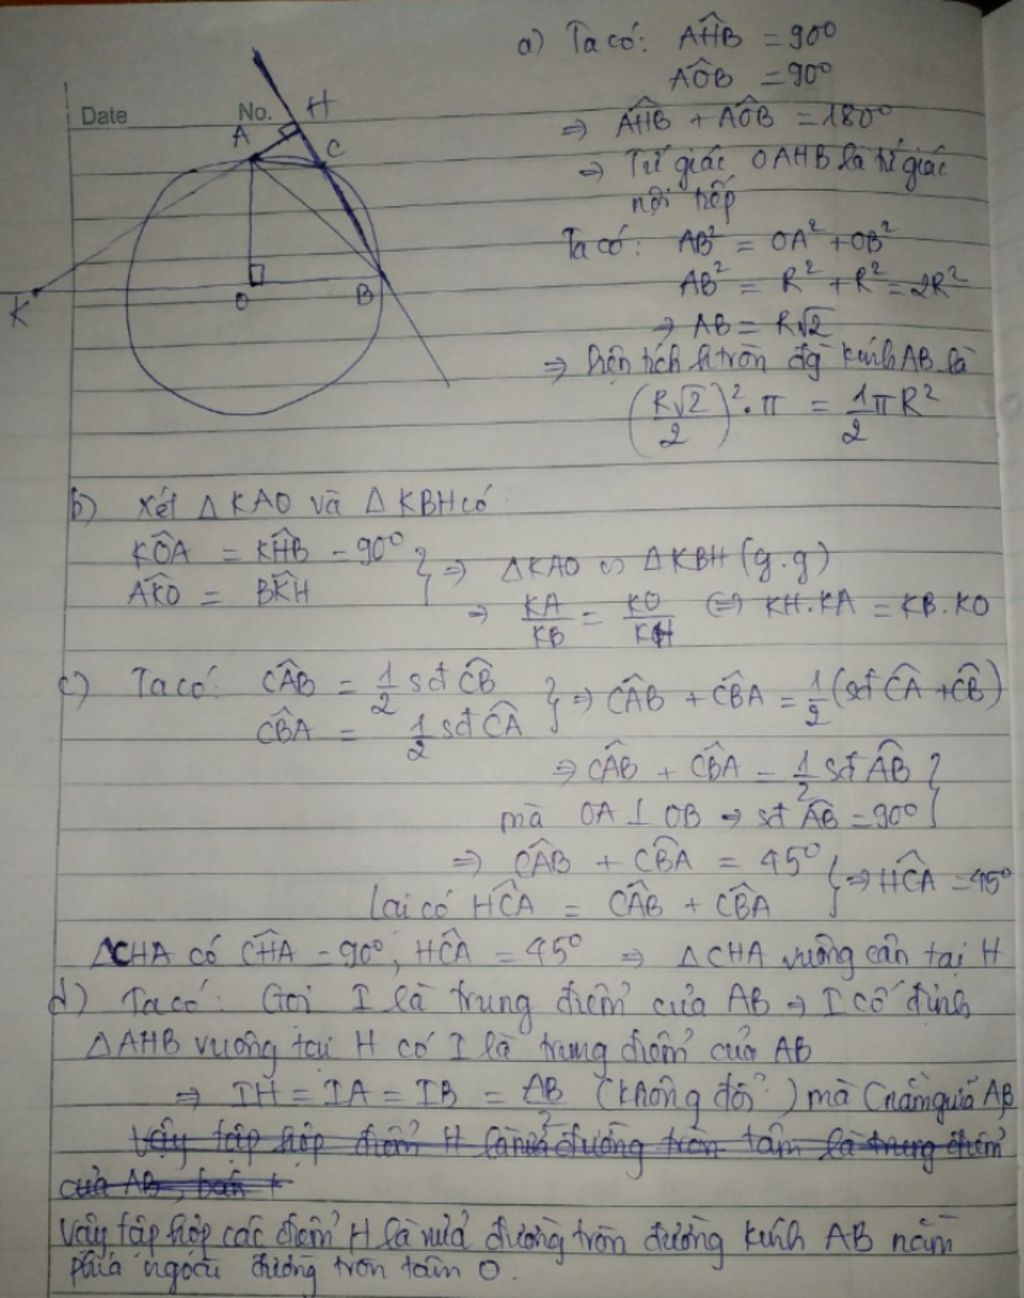 a) Ta có: AĤB = 90°
AÔB = 90°
Date No. H
⇒ AĤB + AÔB = 180°
A C
⇒ Tứ giác OAHB là tứ giác
nội tiếp
Ta có: AB² = OA² + OB²
AB² = R² + R² = 2R²
K O B
⇒ AB = R√2
⇒ Diện tích htròn đg kính AB là
(R√2/2)². π = 1/2 πR²
b) Xét △KAO và △KBH có
KÔA = KĤB = 90°
AK̂O = BK̂H } ⇒ △KAO ∽ △KBH (g.g)
⇒ KA/KB = KO/KH ⇔ KH.KA = KB.KO
c) Ta có: CÂB = 1/2 sđ CB
CB̂A = 1/2 sđ CA } ⇒ CÂB + CB̂A = 1/2 (sđ CA + CB)
⇒ CÂB + CB̂A = 1/2 sđ AB }
mà OA ⊥ OB ⇒ sđ AB = 90°
⇒ CÂB + CB̂A = 45° } ⇒ HĈA = 45°
Lại có HĈA = CÂB + CB̂A
△CHA có CĤA = 90°, HĈA = 45° ⇒ △CHA vuông cân tại H
d) Ta có: Gọi I là trung điểm của AB ⇒ I cố định
△AHB vuông tại H có I là trung điểm của AB
⇒ IH = IA = IB = AB/2 (không đổi) mà C nằm giữa AB
Vậy tập hợp điểm H là nửa đường tròn tâm là trung điểm
của AB, bán k
Vậy tập hợp các điểm H là nửa đường tròn đường kính AB nằm
phía ngoài đường tròn tâm O.